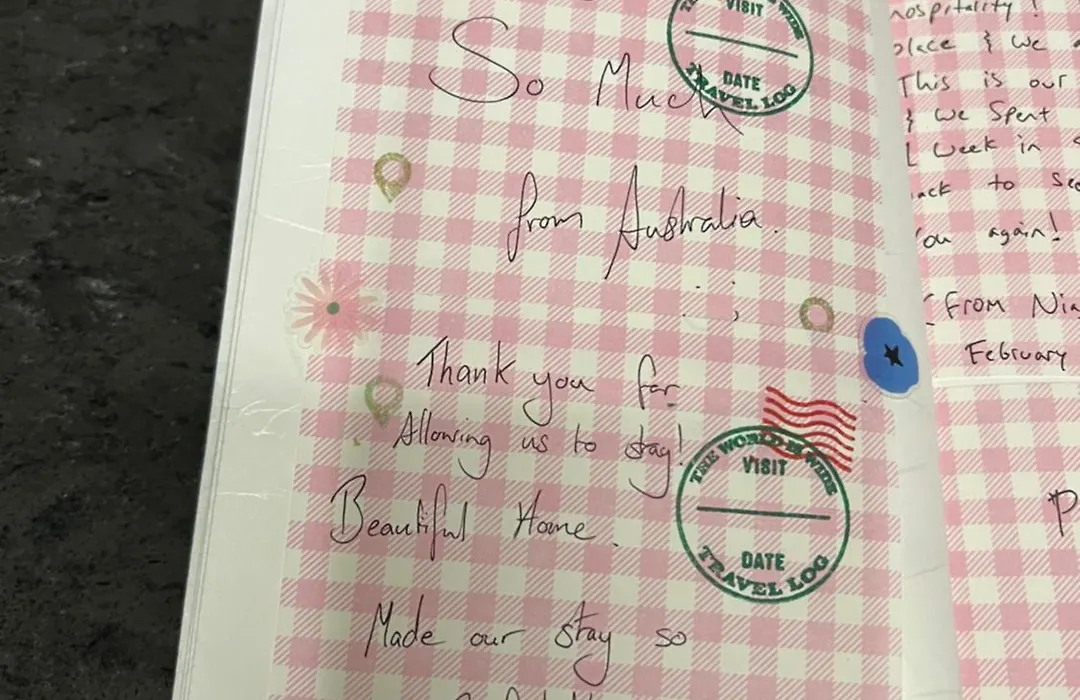 So Much
from Australia.
Thank you for
Allowing us to stay!
Beautiful Home.
Made our stay so
VISIT
DATE
TRAVEL LOG
THE WORLD IS WIDE
VISIT
DATE
TRAVEL LOG
hospitality!
place & we
This is our
& we Spent
1 week in
to
you again!
(From
February